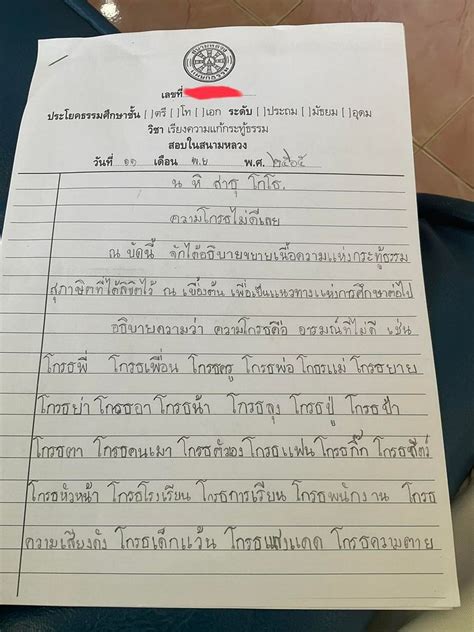 เลขที่
ประโยคธรรมศึกษาชั้น [ ]ตรี [ ]โท [ ]เอก ระดับ [ ]ประถม [ ]มัธยม [ ]อุดม
วิชา เรียงความแก้กระทู้ธรรม
สอบในสนามหลวง
วันที่ ๑๑ เดือน พ.ย พ.ศ. ๒๕๖๕
น หิ สาธุ โกโธ.
ความโกรธไม่ดีเลย
ณ บัดนี้ จักได้อธิบายขยายเนื้อความแห่งกระทู้ธรรม
สุภาษิตที่ได้ลิขิตไว้ ณ เบื้องต้น เพื่อเป็นแนวทางแห่งการศึกษาต่อไป
อธิบายความว่า ความโกรธคือ อารมณ์ที่ไม่ดี เช่น
โกรธพี่ โกรธเพื่อน โกรธครู โกรธพ่อ โกธรแม่ โกรธยาย
โกรธย่า โกรธอา โกรธน้า โกรธลุง โกรธปู่ โกรธป้า
โกรธตา โกรธคนเมา โกรธตัวเอง โกรธแฟน โกรธกิ๊ก โกรธสัตว์
โกรธหัวหน้า โกรธโรงเรียน โกรธการเรียน โกรธพนักงาน โกรธ
ความเสียงดัง โกรธเด็กแว้น โกรธแสงแดด โกรธความตาย